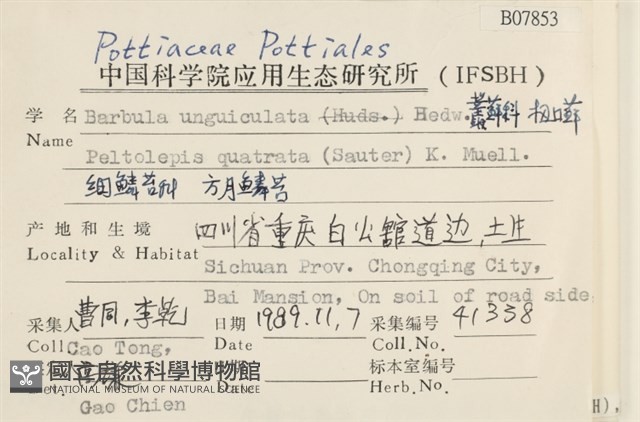 B07853
Pottiaceae Pottiales
中国科学院应用生态研究所 (IFSBH)
学 名 Barbula unguiculata (Huds.) Hedw. 叢蘚科 扭口蘚
Name
Peltolepis quatrata (Sauter) K. Muell.
细鳞苔科 方月鳞苔
产地和生境 四川省重庆白公舘道边,土生
Locality & Habitat Sichuan Prov. Chongqing City,
Bai Mansion, On soil of road side
采集人 曹同,李乾 日期 1989.11,7 采集编号 41338
Coll. Cao Tong, Date Coll.No.
标本室编号
國立自然科學博物館
NATIONAL MUSEUM OF NATURAL SCIENCE Herb.No.
Gao Chien
H),